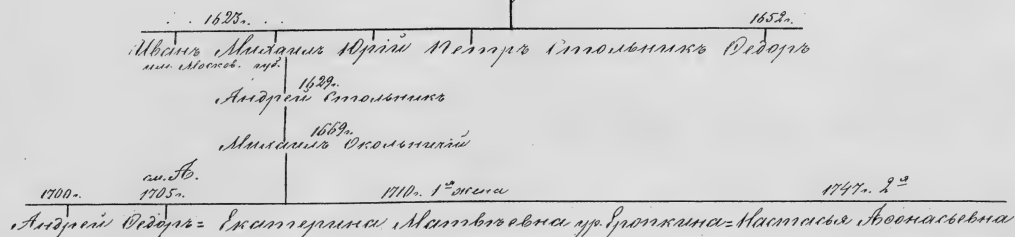 1623г. 1652г.
Иванъ Михаилъ Юрій Петръ Стольникъ Ѳедоръ
им. Москов. губ.
1629г.
Андрей Стольникъ
1669г.
Михаилъ Окольничій
см. А.
1700г. 1705г. 1710г. 1ая жена 1747г. 2ая
Андрей Ѳедоръ= Екатерина Матвѣевна ур. Еропкина=Настасья Аѳонасьевна